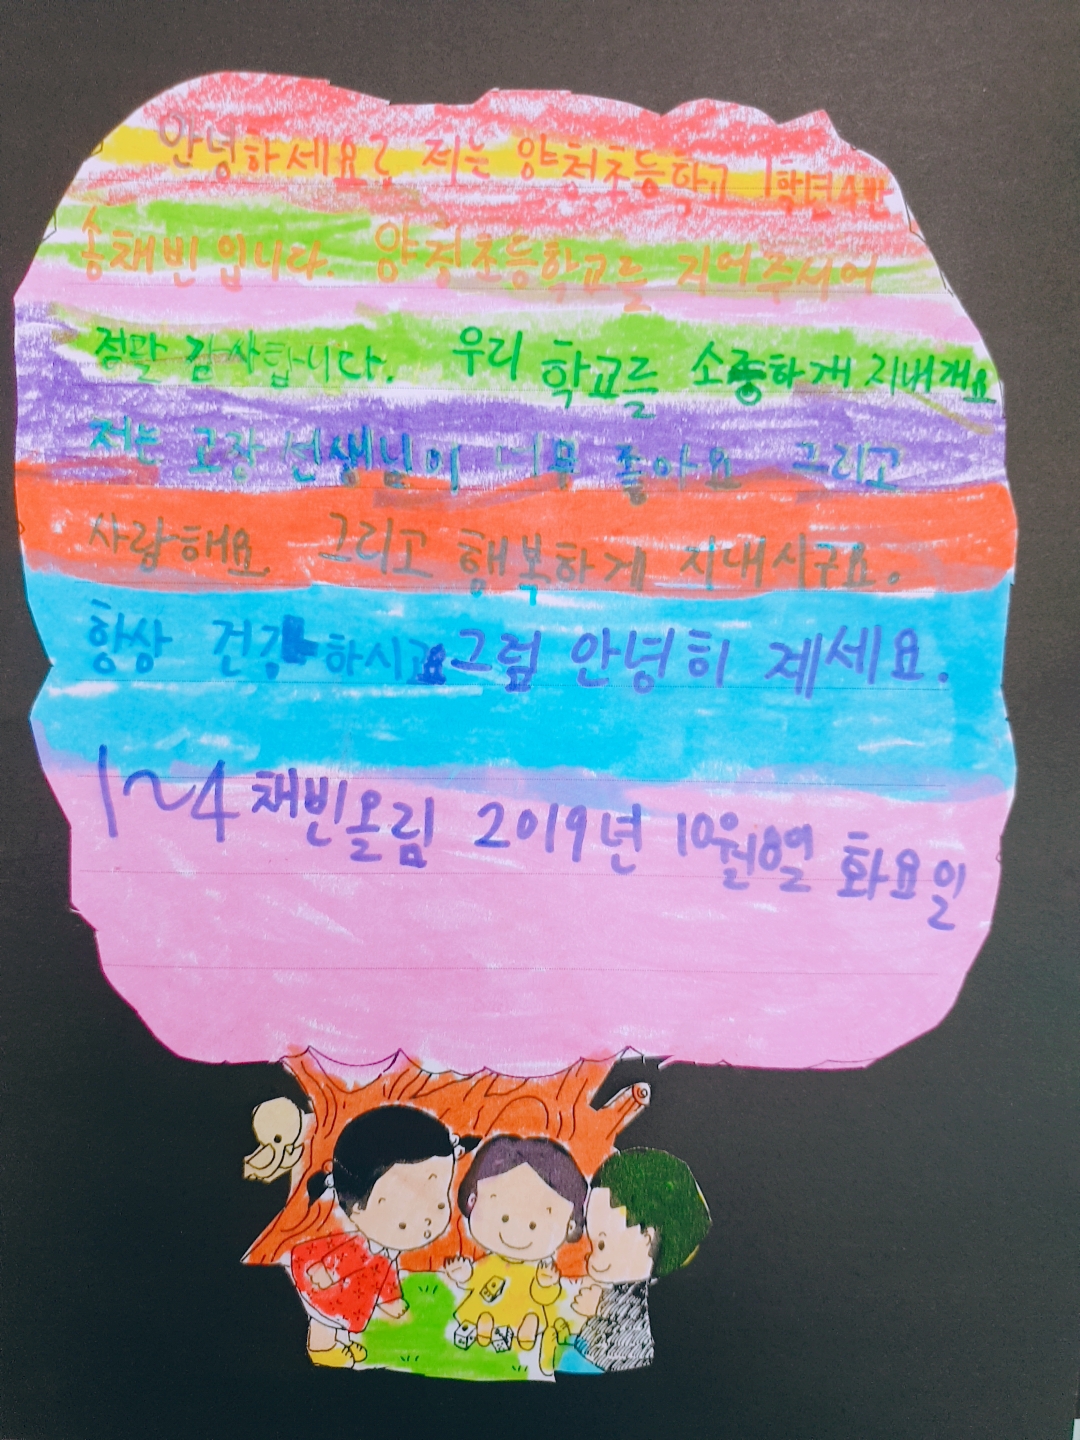 안녕하세요? 저는 양청초등학교 1학년4반
송채빈입니다. 양청초등학교를 지어주시어
정말 감사합니다. 우리 학교를 소중하게 지내개요
저는 교장선생님이 너무 좋아요 그리고
사랑해요 그리고 행복하게 지내시구요.
항상 건강하시고요 그럼 안녕히 계세요.
1~4 채빈올림 2019년 10월8일 화요일